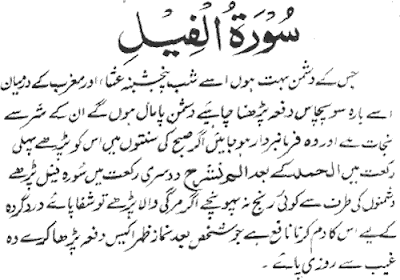 سُورَةُ الْفِيلِ
جس کے دشمن بہت ہوں اسے شب پنجشنبہ عشاء اور مغرب کے درمیان
اسے بارہ سو پچاس دفعہ پڑھنا چاہیے دشمن پامال ہوں گے ان کے شر سے
نجات ہے اور وہ فرمانبردار ہو جائیں اگر صبح کی سنتوں میں اس کو پڑھے پہلی
رکعت میں الحمد کے بعد الم نشرح دوسری رکعت میں سورہ فیل پڑھے
دشمنوں کی طرف سے کوئی رنج نہ پہونچے اگر مرگی والا پڑھے تو شفا پائے درد گردہ
کے لیے اس کا دم کرنا نافع ہے جو شخص بعد نماز ظہر اکیس دفعہ پڑھا کرے وہ
غیب سے روزی پائے۔